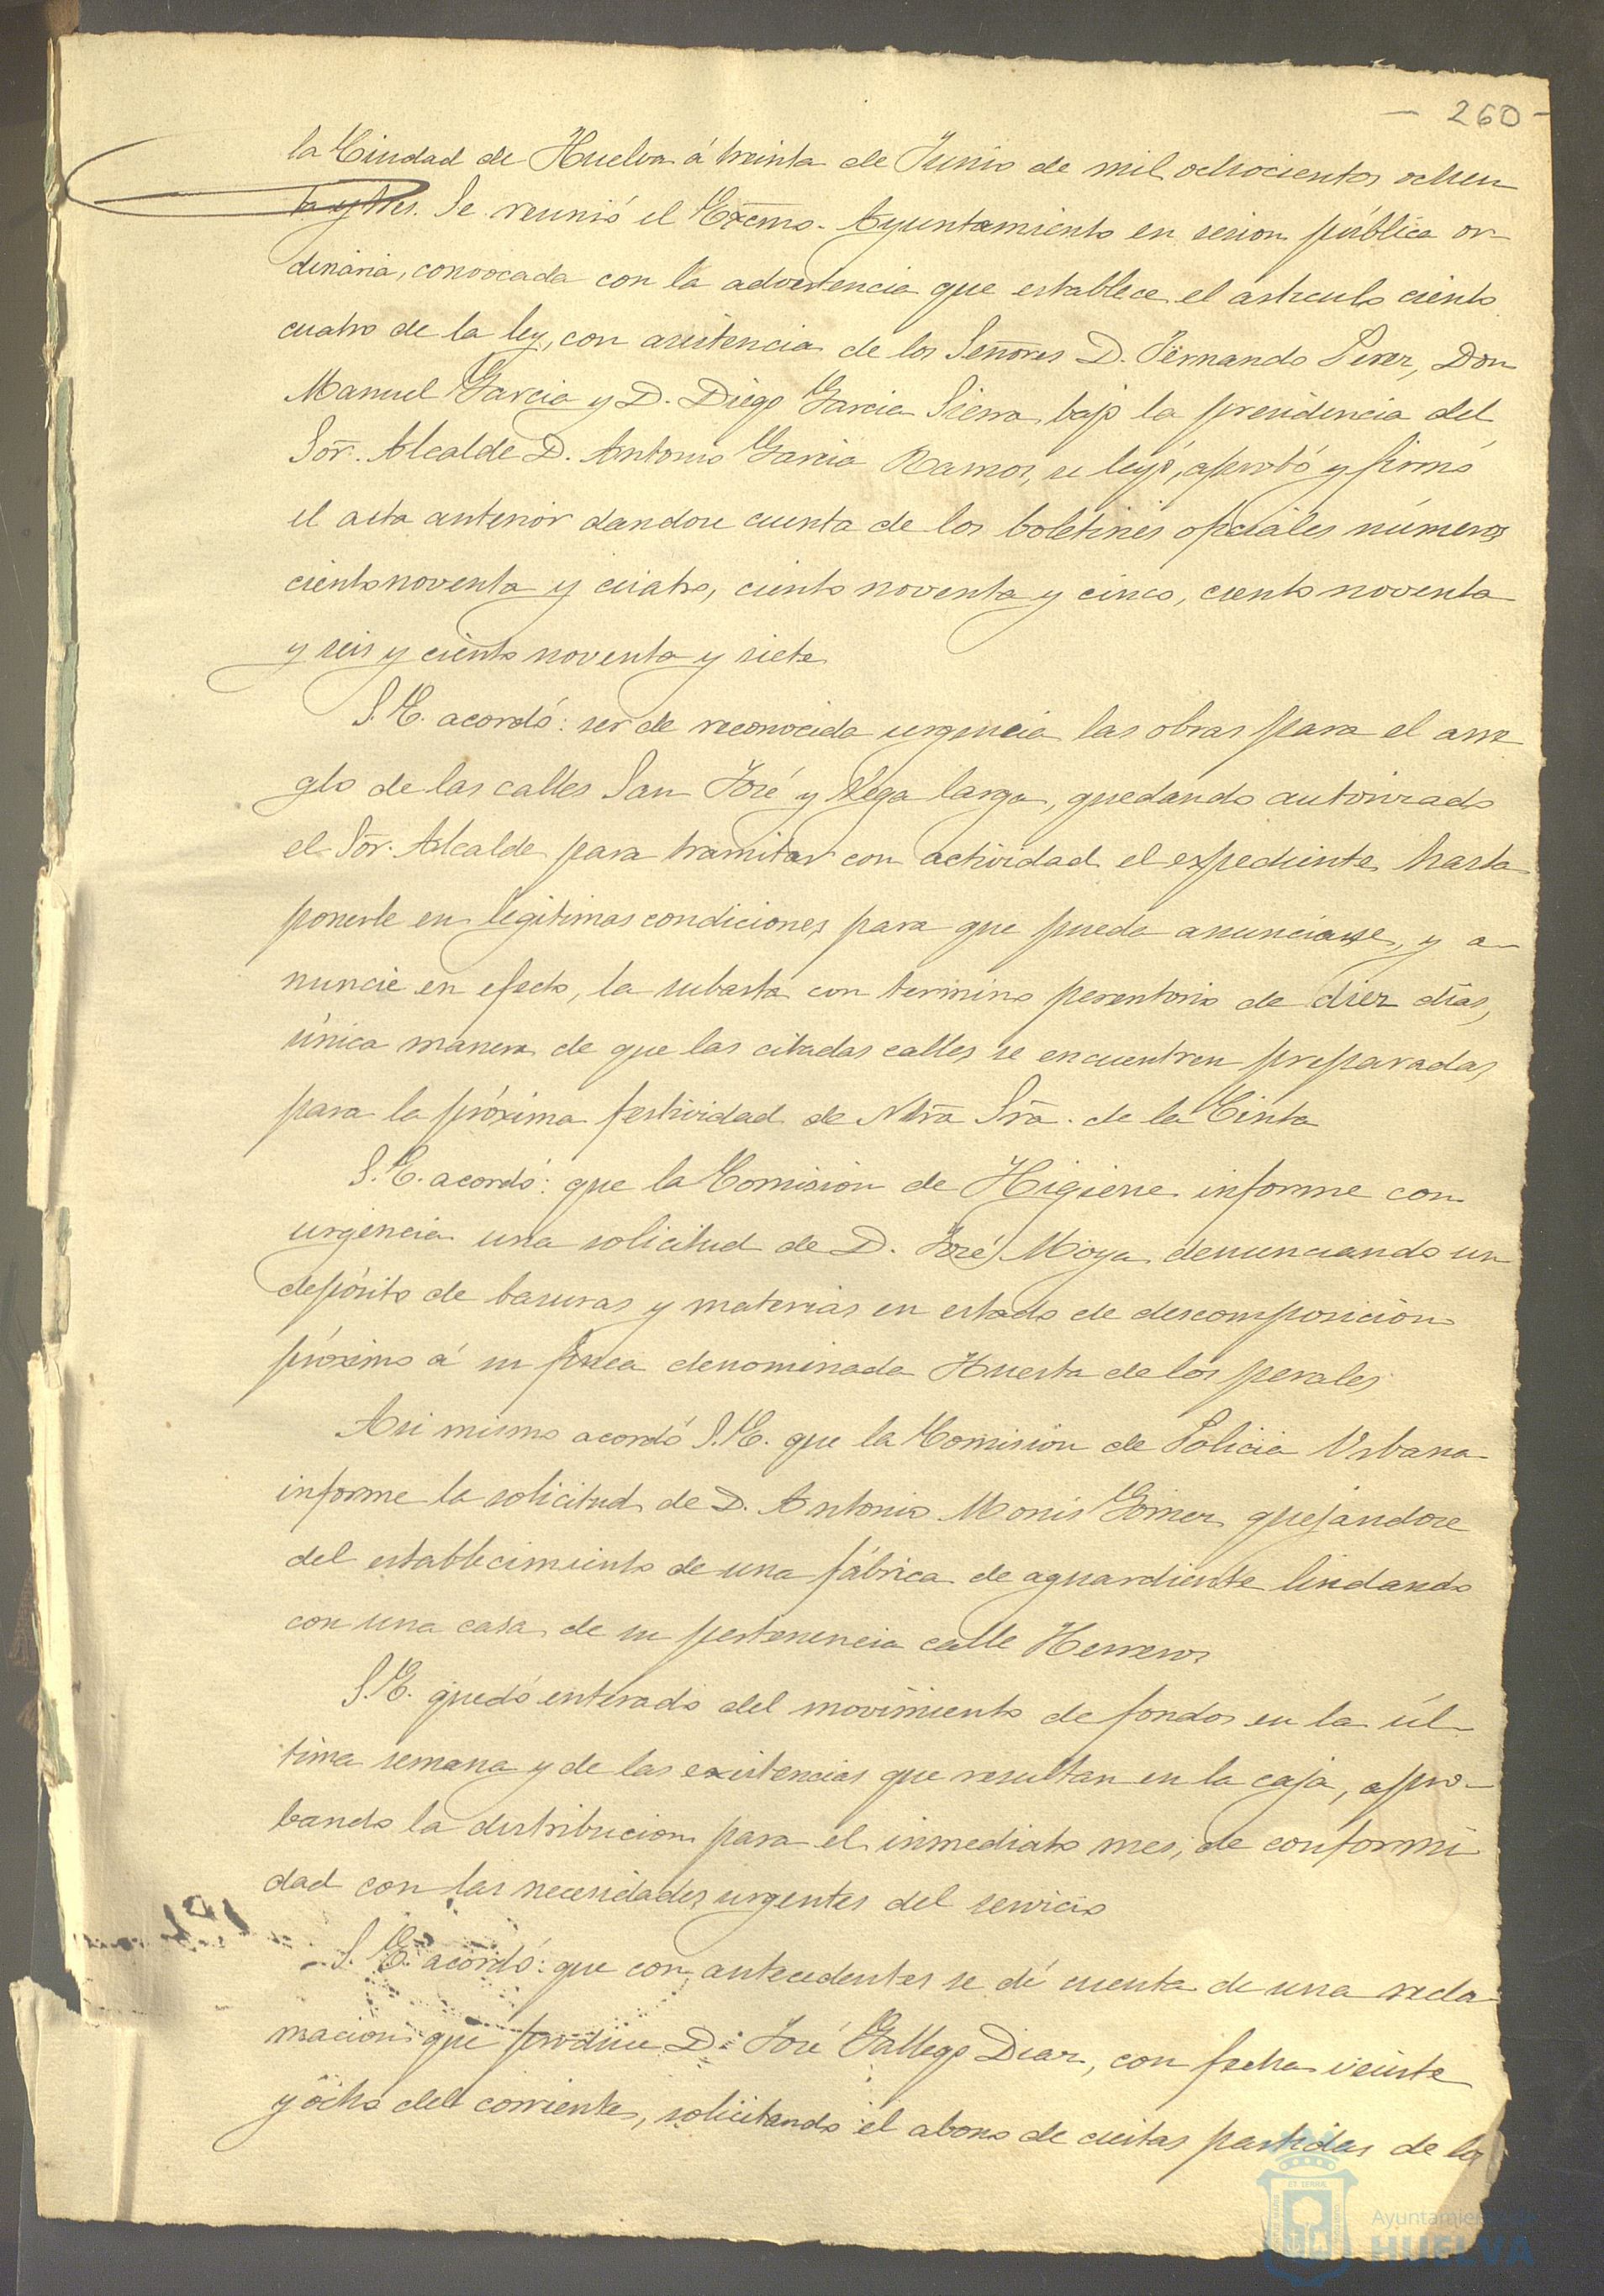 - 260 -
la Ciudad de Huelva á treinta de Junio de mil ochocientos ochen
ta y tres. Se reunió el Excmo. Ayuntamiento en sesion pública or-
dinaria, convocada con la advertencia que establece el articulo ciento
cuatro de la ley, con asistencia de los Señores D. Fernando Perez, Don
Manuel Garcia y D. Diego Garcia Sierra, bajo la presidencia del
Sor. Alcalde D. Antonio Garcia Ramos, se leyó, aprobó y firmó
el acta anterior dandose cuenta de los boletines oficiales números
ciento noventa y cuatro, ciento noventa y cinco, ciento noventa
y seis y ciento noventa y siete
S. E. acordó: ser de reconocida urgencia las obras para el arre
glo de las calles San José y Vega larga, quedando autorizado
el Sor. Alcalde para tramitar con actividad el expediente hasta
ponerle en legitimas condiciones para que pueda anunciarse, y a-
nuncie en efecto, la subasta con termino perentorio de diez dias,
única manera de que las citadas calles se encuentren preparadas
para la próxima festividad de Ntra Sra. de la Cinta
S. E. acordó: que la Comision de Higiene informe con
urgencia una solicitud de D. José Moya denunciando un
depósito de basuras y materias en estado de descomposicion
próximo á su finca denominada Huerta de los perales
Asi mismo acordó S. E. que la Comision de Policia Urbana
informe la solicitud de D. Antonio Monis Gomez quejandose
del establecimiento de una fábrica de aguardiente lindando
con una casa de su pertenencia calle Herreros
S. E. quedó enterado del movimiento de fondos en la úl-
tima semana y de las existencias que resultan en la caja, apro-
bando la distribucion para el inmediato mes, de conformi
dad con las necesidades urgentes del servicio
S. E. acordó: que con antecedentes se dé cuenta de una recla
macion que produce D. José Gallego Diaz, con fecha veinte
y ocho del corriente, solicitando el abono de ciertas partidas de los
Ayuntamiento de
HUELVA